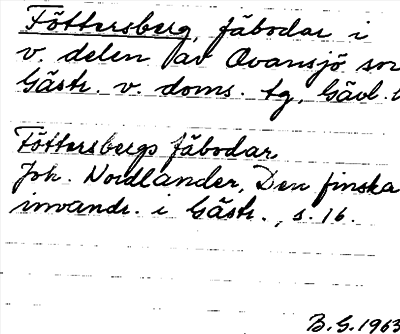 Föttersberg, fäbodar i
v. delen av Ovansjö so
Gästr. v. doms. tg, Gävl.
Föttersbergs fäbodar
Joh. Nordlander, Den finska
invandr. i Gästr., s. 16.
B.G. 1963